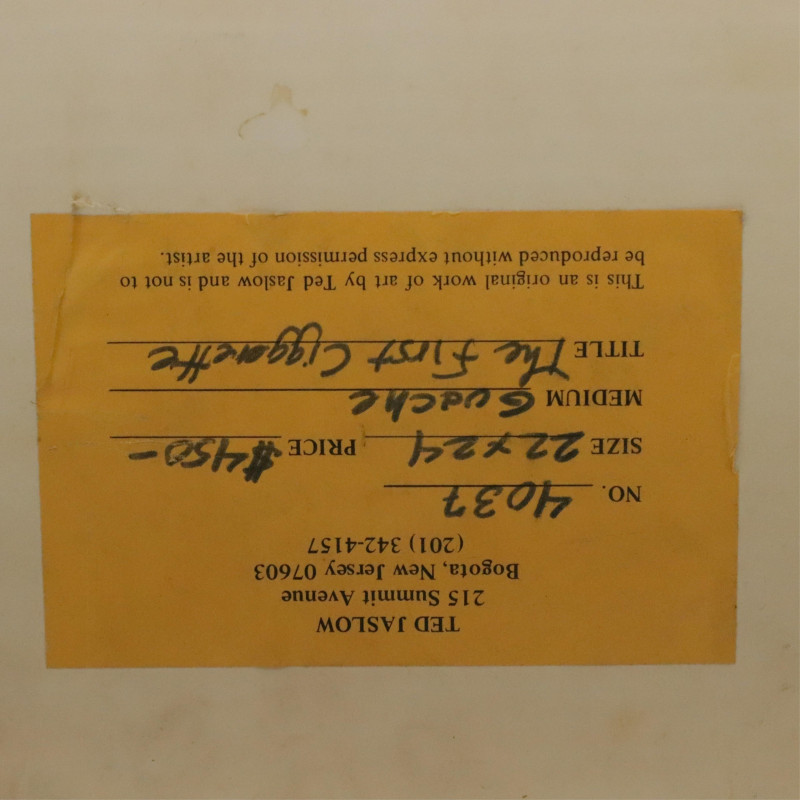 TED JASLOW
215 Summit Avenue
Bogota, New Jersey 07603
(201) 342-4157
NO. 4037
SIZE 22 x 24 PRICE #450-
MEDIUM Guache
TITLE The First Ciggarette
This is an original work of art by Ted Jaslow and is not to
be reproduced without express permission of the artist.